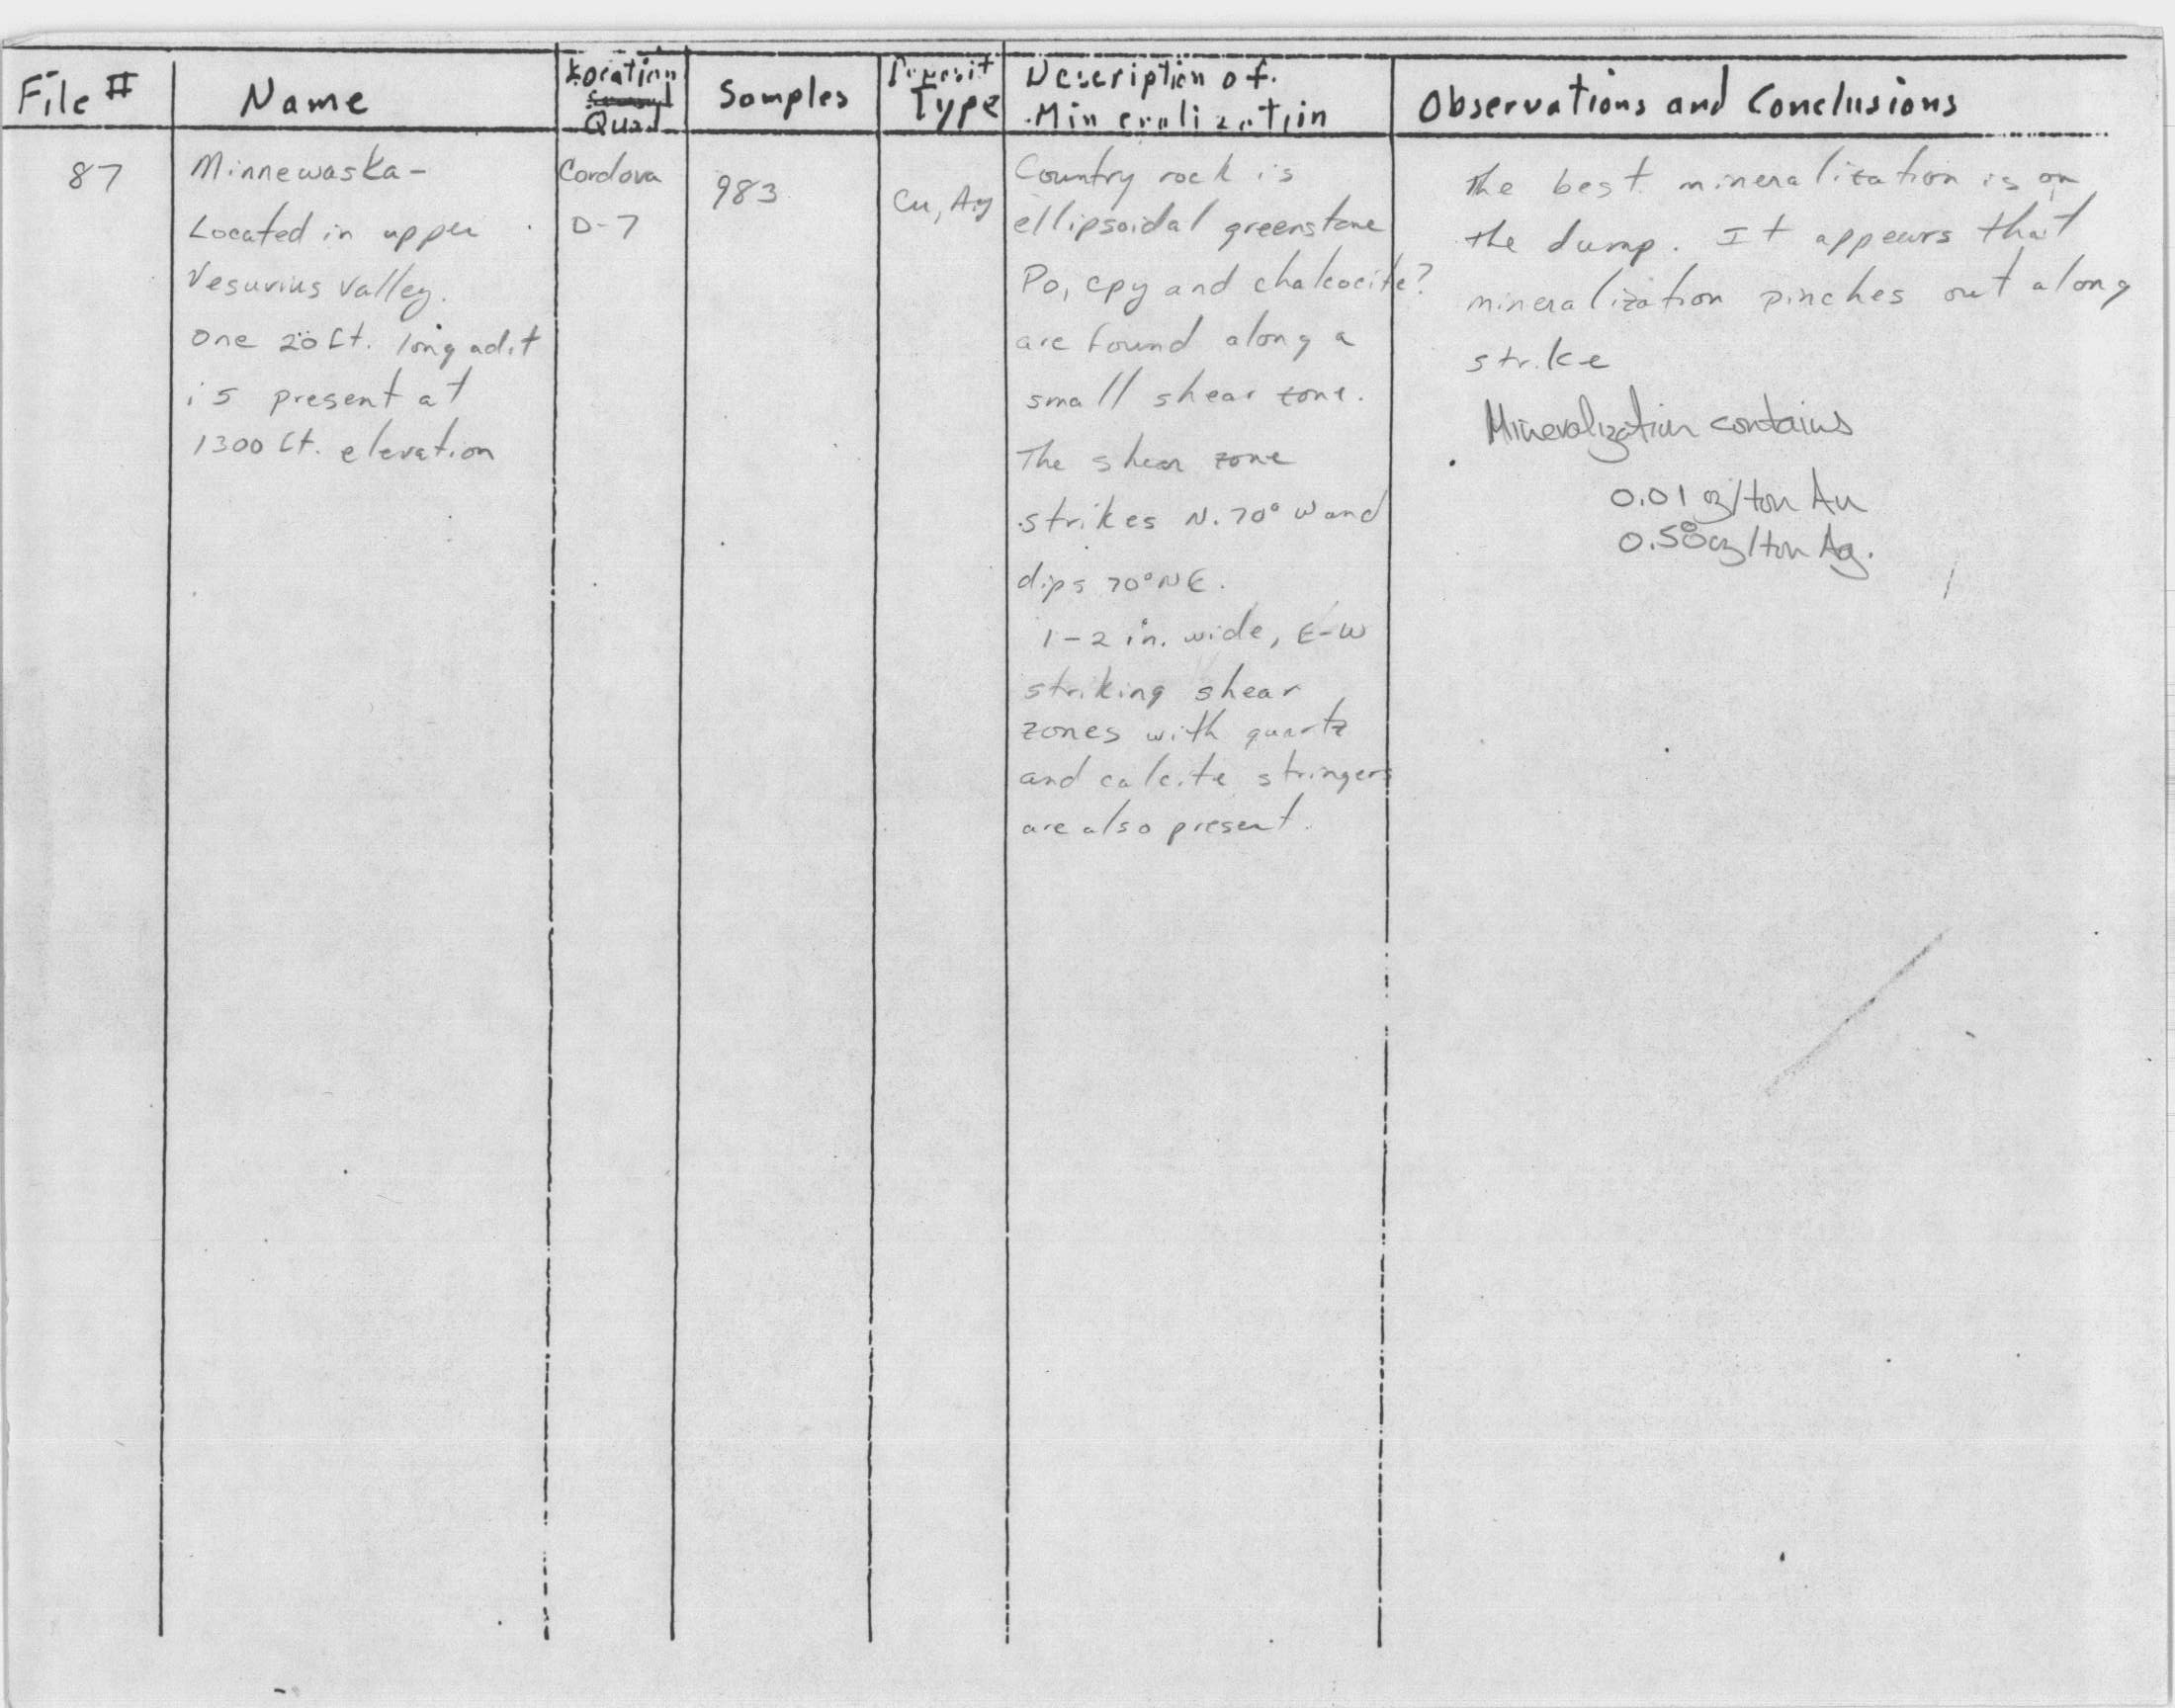 File # Name Location Quad Samples Deposit Type Description of Mineralization Observations and Conclusions
87
Minnewaska-
Located in upper
Vesuvius Valley.
One 20 ft. long adit
is present at
1300 ft. elevation
Cordova
D-7
983
Cu, Ag
Country rock is
ellipsoidal greenstone
Po, cpy and chalcocite?
are found along a
small shear zone.
The shear zone
strikes N. 70° W and
dips 70° NE.
1-2 in. wide, E-W
striking shear
zones with quartz
and calcite stringers
are also present.
The best mineralization is on
the dump. It appears that
mineralization pinches out along
strike
Mineralization contains
0.01 oz/ton Au
0.50 oz/ton Ag.